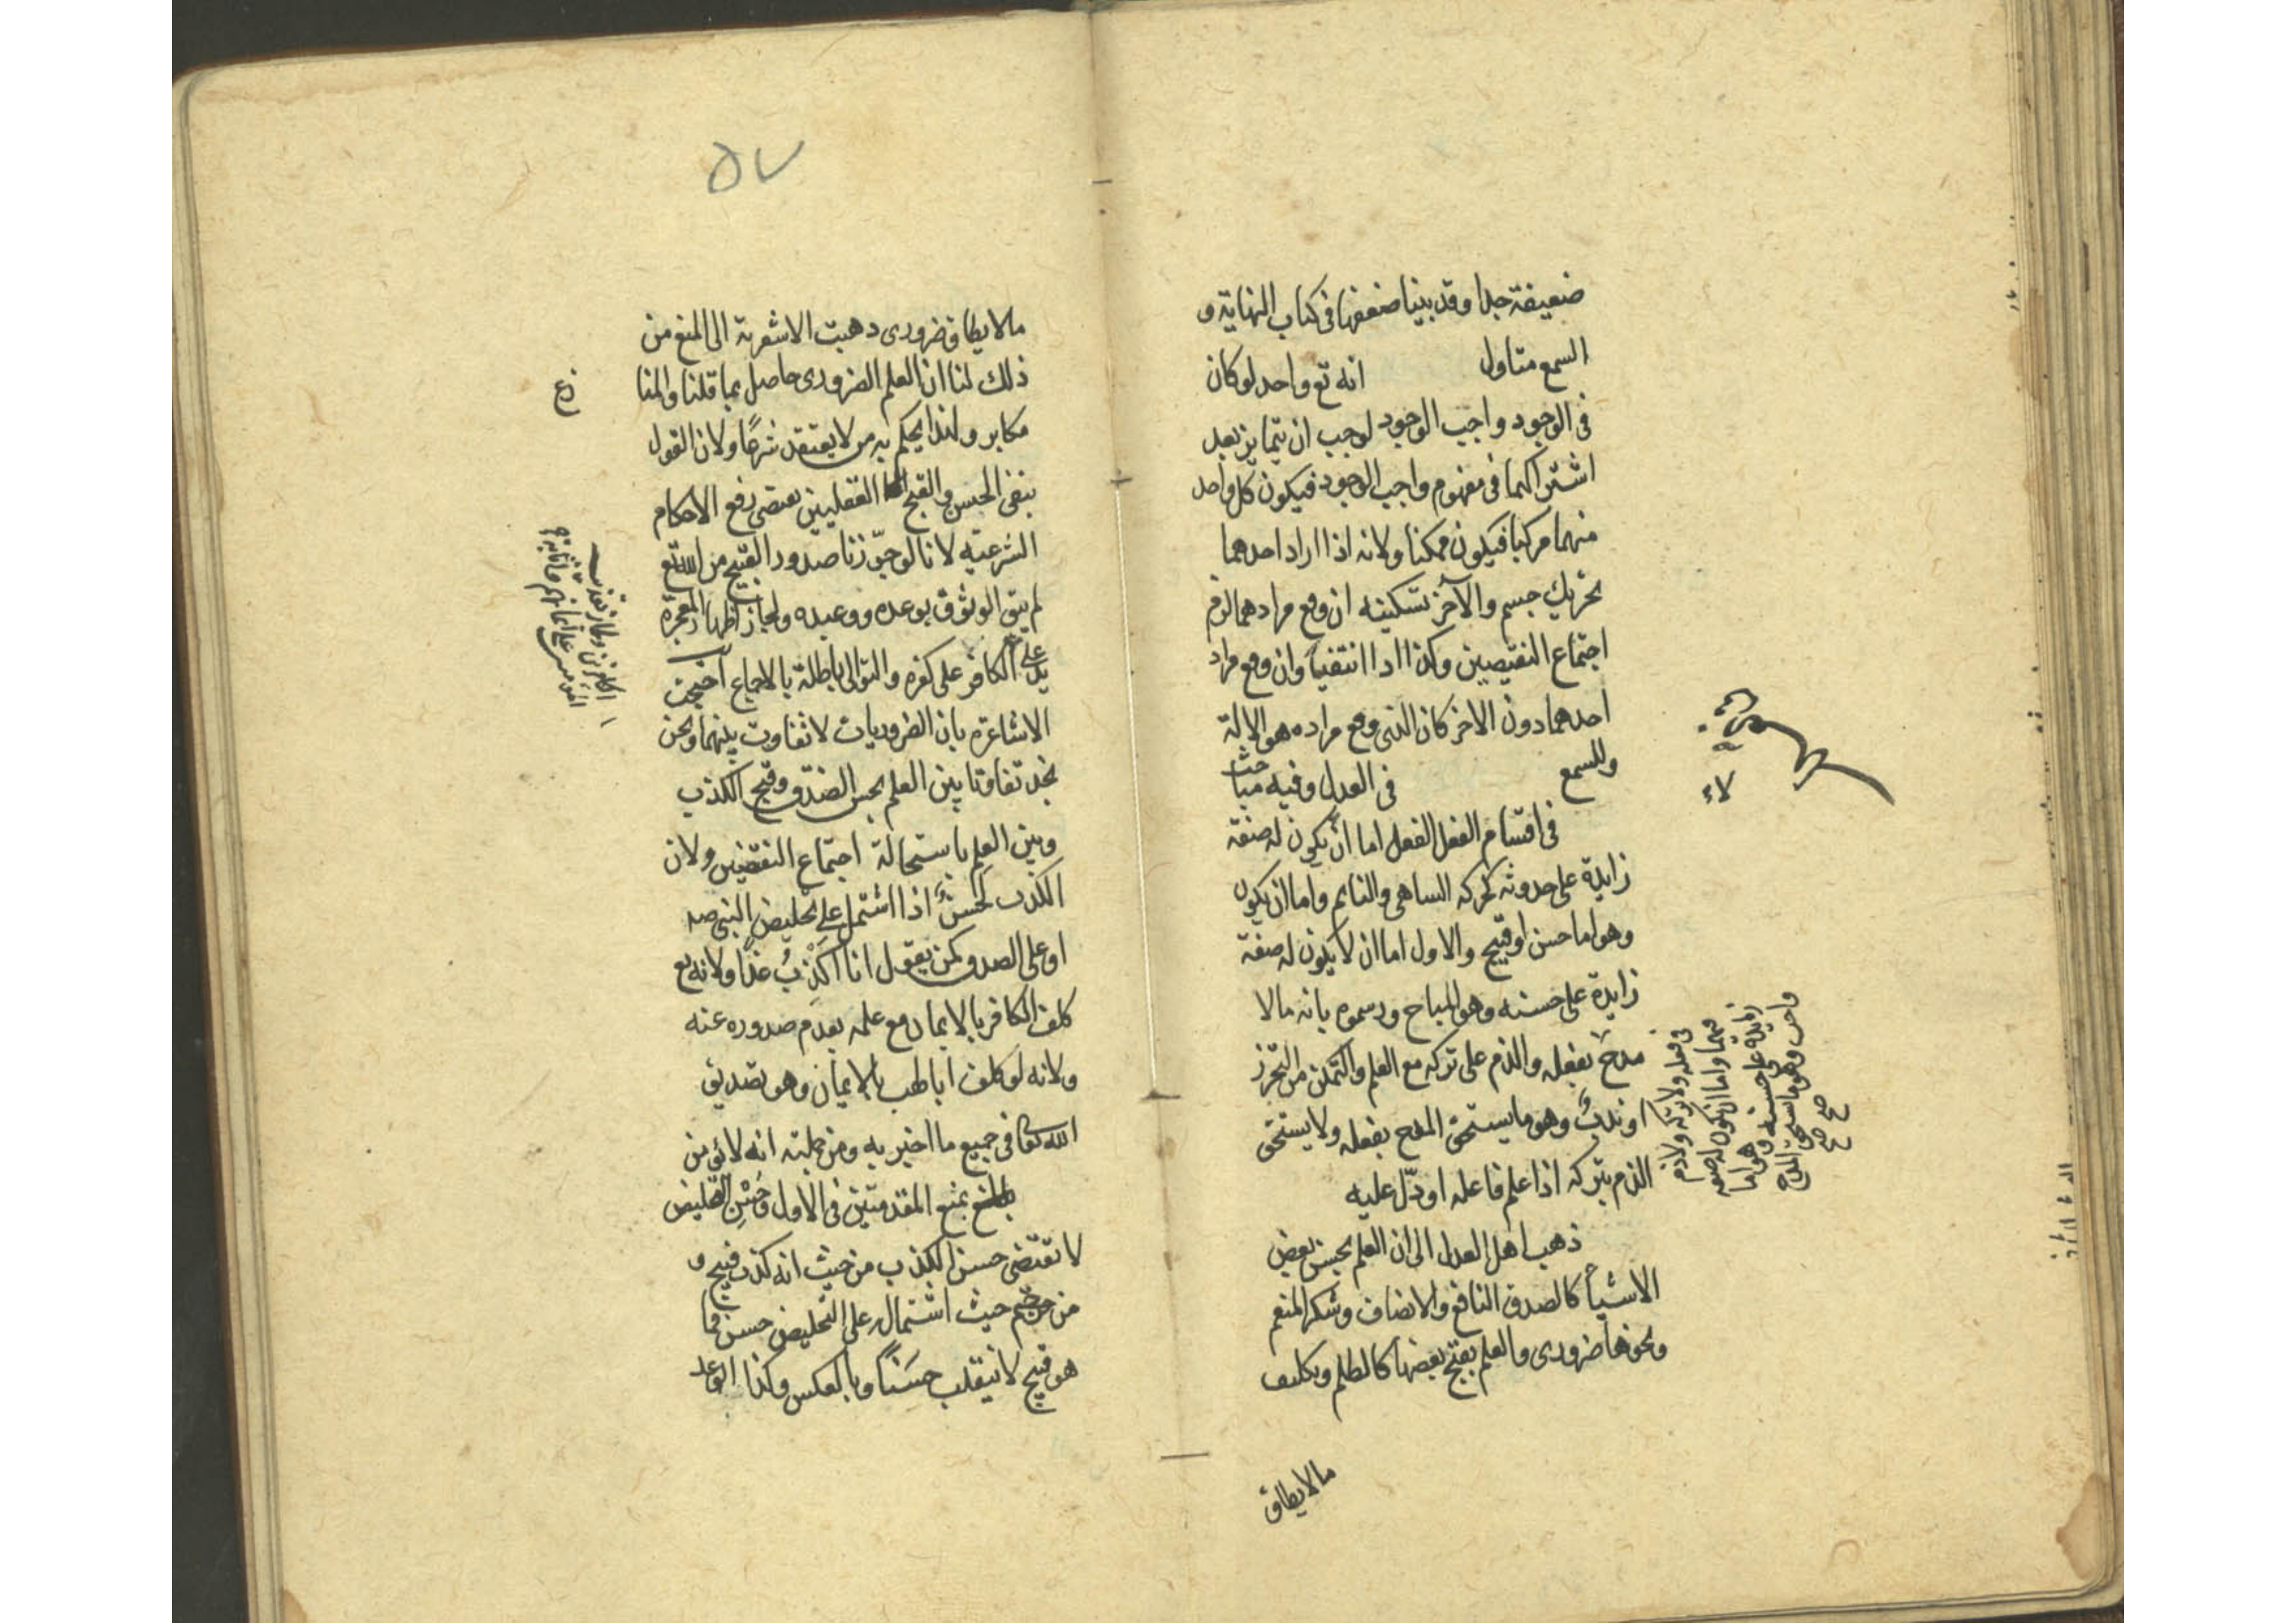 ضعيفة جدا وقد بينا ضعفها فى كتاب النهاية و
السمع متاول انه تع واحد لو كان
فى الوجود واجب الوجود لوجب ان يتمايز بعد
اشتراكهما فى مفهوم واجب الوجود فيكون كل واحد
منهما مركبا فيكون ممكنا ولانه اذا اراد احدهما
تحريك جسم والآخر تسكينه ان وقع مرادهما لزم
اجتماع النقيضين وكذا اذا انتفيا وان وقع مراد
احدهما دون الاخر كان الذى وقع مراده هو الاله
وللسمع فى العدل وفيه مباحث
فى اقسام الفعل الفعل اما ان يكون له صفة
زايدة على حدوثه كحركه الساهى والنايم واما ان يكون
وهو اما حسن او قبيح والاول اما ان لا يكون له صفة
زايدة على حسنه وهو المباح ورسموه بانه مالا
مدح بفعله والذم على تركه مع العلم والتمكن من التحرز
او ندبٌ وهو ما يستحق المدح بفعله ولا يستحق
الذم بتركه اذا علم فاعله او دلّ عليه
ذهب اهل العدل الى ان العلم بحسن بعض
الاشياء كالصدق النافع والانصاف وشكر المنعم
ونحوها ضرورى والعلم بقبح بعضها كالظلم وتكليف
ما لا يطاق
لاء
فى فعله ولا تركه ولا ذم
فيهما واما ان يكون له صفة
زايدة على حسنه وهو اما
واجب وهو ما يستحق المدح
صح صح
٥٧
مالا يطاق ضرورى ذهبت الاشعرية الى المنع من
ذلك لنا ان العلم الضرورى حاصل بما قلنا والمنا
زع
مكابر ولهذا يحكم به من لا يعتقد شرعًا ولان القول
بنفى الحسن والقبح العقليين يقتضى رفع الاحكام
الشرعيه لانا لو جوّزنا صدور القبيح من الله تع
لم يبق الوثوق بوعده ووعيده ولجاز اظهار المعجزة
على يد الكافر على كفره والتوالى باطلة بالاجماع احتجت
الاشاعرة بان الضروريات لا تفاوت بينهما ونحن
نجد تفاوتا بين العلم بحسن الصّدق وقبح الكذب
وبين العلم باستحالة اجتماع النقيضين ولان
الكذب لحسنٌ اذا اشتمل على تخليص النبى صه
او على الصدق كمن يقول انا اكذبُ غدًا ولانه تع
كلف الكافر بالايمان مع علمه بعدم صدوره عنه
ولانه لو كلف ابا لهب بالايمان وهو تصديق
الله تعا فى جميع ما اخبر به ومن جملته انه لا يؤمن
بالمنع بمنع المقدمتين فى الاول وحسن التخليص
لا تقتضى حسن الكذب من حيث انه كذب قبيح و
من حيث اشتماله على التخليص حسن فما
هو قبيح لا ينقلب حسنًا وبالعكس وكذا الوعد